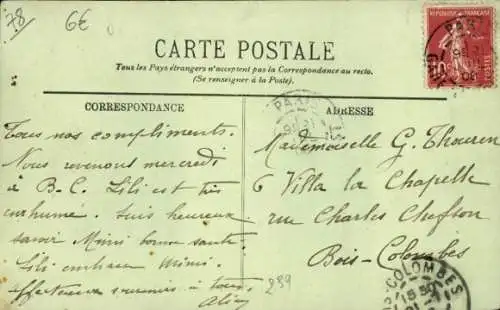 78
6€
CARTE POSTALE
Tous les Pays étrangers n'acceptent pas la Correspondance au recto.
(Se renseigner à la Poste).
CORRESPONDANCE
Tous nos compliments.
Nous revenons mercredi
à B-C. Lili est très
enrhumé. Suis heureux
savoir Mimi bonne santé.
Lili embrasse Mimi.
Affectueux souvenirs à tous.
ADRESSE
Mademoiselle G. Thouren
6 Villa la Chapelle
rue Charles Chefson
Bois-Colombes
289
PARIS
COLOMBES